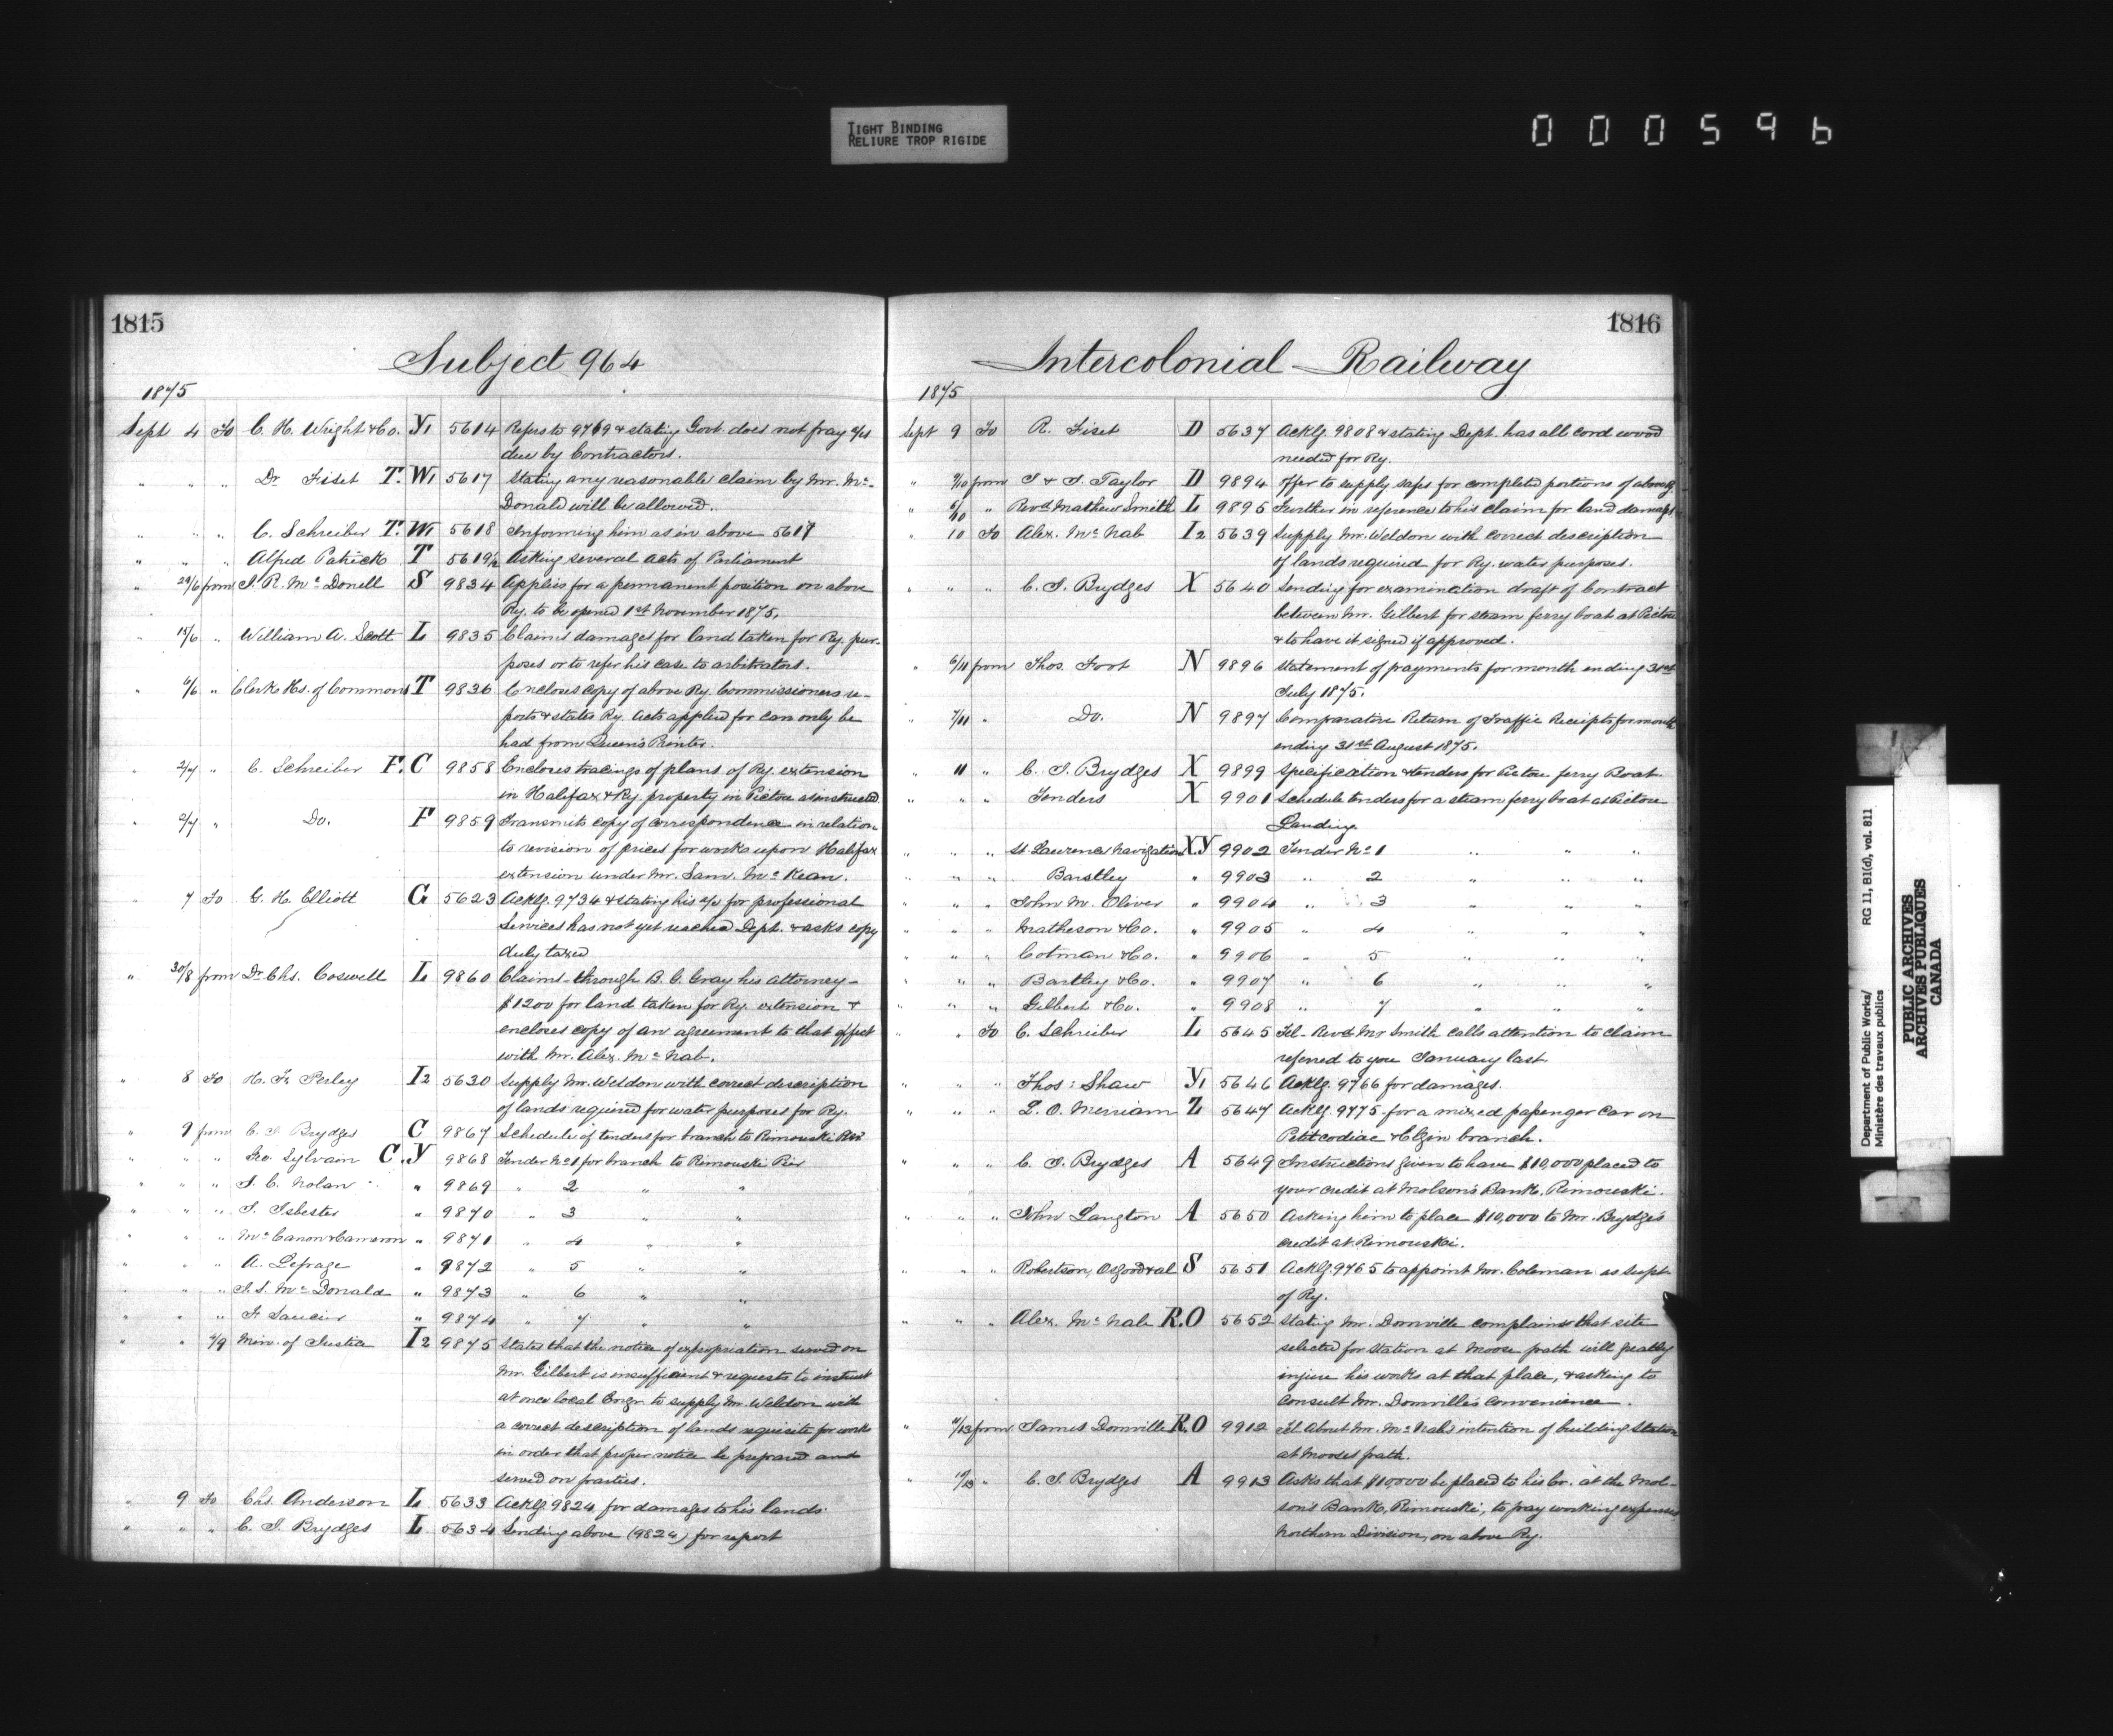 TIGHT BINDING
RELIURE TROP RIGIDE
000596
1815
Subject 964
1875
Sept 4 To C. H. Wright & Co. Y1 5614 Refers to 9769 & stating Govt. does not pay a/cs
due by Contractors.
" " " Dr Fiset T. W1 5617 Stating any reasonable claim by Mr. Mc-
Donald will be allowed.
" " " C. Schreiber T. W1 5618 Informing him as in above 5617
" " " Alfred Patrick T 5619½ Asking several acts of Parliament
" 29/6 from J. R. Mc Donell S 9834 Applies for a permanent position on above
Ry. to be opened 1st November 1875.
" 15/6 " William A. Scott L 9835 Claims damages for land taken for Ry. pur-
poses or to refer his case to arbitrators.
" 4/6 " Clerk Hs. of Commons T 9836 Encloses copy of above Ry. Commissioners re-
ports & states Ry. Acts applied for can only be
had from Queen's Printer.
" 2/7 " C. Schreiber F. C 9858 Encloses tracings of plans of Ry. extension
in Halifax & Ry. property in Pictou as instructed
" 2/7 " Do. F 9859 Transmits copy of correspondence in relation
to revision of prices for works upon Halifax
extension under Mr. Sam. Mc Kean.
" 7 To G. H. Elliott G 5623 Acklg. 9734 & stating his a/c for professional
Services has not yet reached Dept. & asks copy
duly taxed
" 30/8 from Dr. Chs. Coswell L 9860 Claims through B. G. Gray his attorney -
$1200 for land taken for Ry. extension &
encloses copy of an agreement to that effect
with Mr. Alex. Mc Nab.
" 8 To H. F. Perley I2 5630 Supply Mr. Weldon with correct description
of lands required for water purposes for Ry.
" 9 from C. J. Brydges C 9867 Schedule of tenders for branch to Rimouski
" " " Geo. Sylvain C. Y 9868 Tender No 1 for branch to Rimouski Pier
" " " J. C. Nolan " 9869 " 2 " "
" " " J. Isbester " 9870 " 3 " "
" " " Mc Canon & Cameron " 9871 " 4 " "
" " " A. Lepage " 9872 " 5 " "
" " " J. S. Mc Donald " 9873 " 6 " "
" " " F. Saucier " 9874 " 7 " "
" " 4/9 Min. of Justice I2 9875 States that the notice of expropriation served on
Mr. Gilbert is insufficient & requests to instruct
at once local Engr. to supply Mr. Weldon with
a correct description of lands requisite for works
in order that proper notice be prepared and
served on parties.
" 9 To Chs. Anderson L 5633 Acklg. 9824 for damages to his lands
" " " C. J. Brydges L 5634 Sending above (9824) for report
1816
Intercolonial Railway
1875
Sept 9 To R. Fiset D 5637 Acklg. 9808 & stating Dept. has all cord wood
needed for Ry.
" 9/10 from J & J. Taylor D 9894 Offer to supply safes for completed portions of above
" 6/10 " Revd. Mathew Smith L 9895 Further in reference to his claim for land damage
" 10 To Alex. Mc Nab I2 5639 Supply Mr. Weldon with correct description
of lands required for Ry. water purposes.
" " " C. J. Brydges X 5640 Sending for examination draft of Contract
between Mr. Gilbert for steam ferry boat at Pictou
& to have it signed if approved.
" 6/11 from Thos. Foot N 9896 Statement of payments for month ending 31st
July 1875.
" 7/11 " Do. N 9897 Comparative Return of Traffic Receipts for month
ending 31st August 1875.
" 11 " C. J. Brydges X 9899 Specification & tenders for Pictou ferry Boat.
" " " Tenders X 9901 Schedule tenders for a steam ferry boat at Pictou
Landing.
" " " St. Lawrence Navigation XY 9902 Tender No 1 " " "
" " " Barstley " 9903 " 2 " " "
" " " John M. Oliver " 9904 " 3 " " "
" " " Matheson & Co. " 9905 " 4 " " "
" " " Cotman & Co. " 9906 " 5 " " "
" " " Bartley & Co. " 9907 " 6 " " "
" " " Gilbert & Co. " 9908 " 7 " " "
" " To C. Schreiber L 5645 Tel- Revd Mr Smith calls attention to claim
referred to you January last
" " " Thos: Shaw Y1 5646 Acklg. 9766 for damages.
" " " L. O. Merriam Z 5647 Acklg. 9775 for a mixed passenger car on
Petitcodiac & Elgin branch.
" " " C. J. Brydges A 5649 Instructions given to have $10,000 placed to
your credit at Molson's Bank, Rimouski.
" " " John Langton A 5650 Asking him to place $10,000 to Mr. Brydges
credit at Rimouski.
" " " Robertson, Osgood & al S 5651 Acklg. 9765 to appoint Mr. Coleman as supt.
of Ry.
" " " Alex. Mc Nab R.O 5652 Stating Mr. Domville complains that site
selected for station at Moose path will greatly
injure his works at that place, & asking to
consult Mr. Domville's convenience.
" 11/13 from James Domville R.O 9912 Tel About Mr. Mc Nab's intention of building Station
at Mooses path.
" 10/13 " C. J. Brydges A 9913 Asks that $10,000 be placed to his Cr. at the Mol-
son's Bank, Rimouski, to pay working expenses
Northern Division, on above Ry.
Department of Public Works/ RG 11, B1(d), vol. 811
Ministère des travaux publics
PUBLIC ARCHIVES
ARCHIVES PUBLIQUES
CANADA